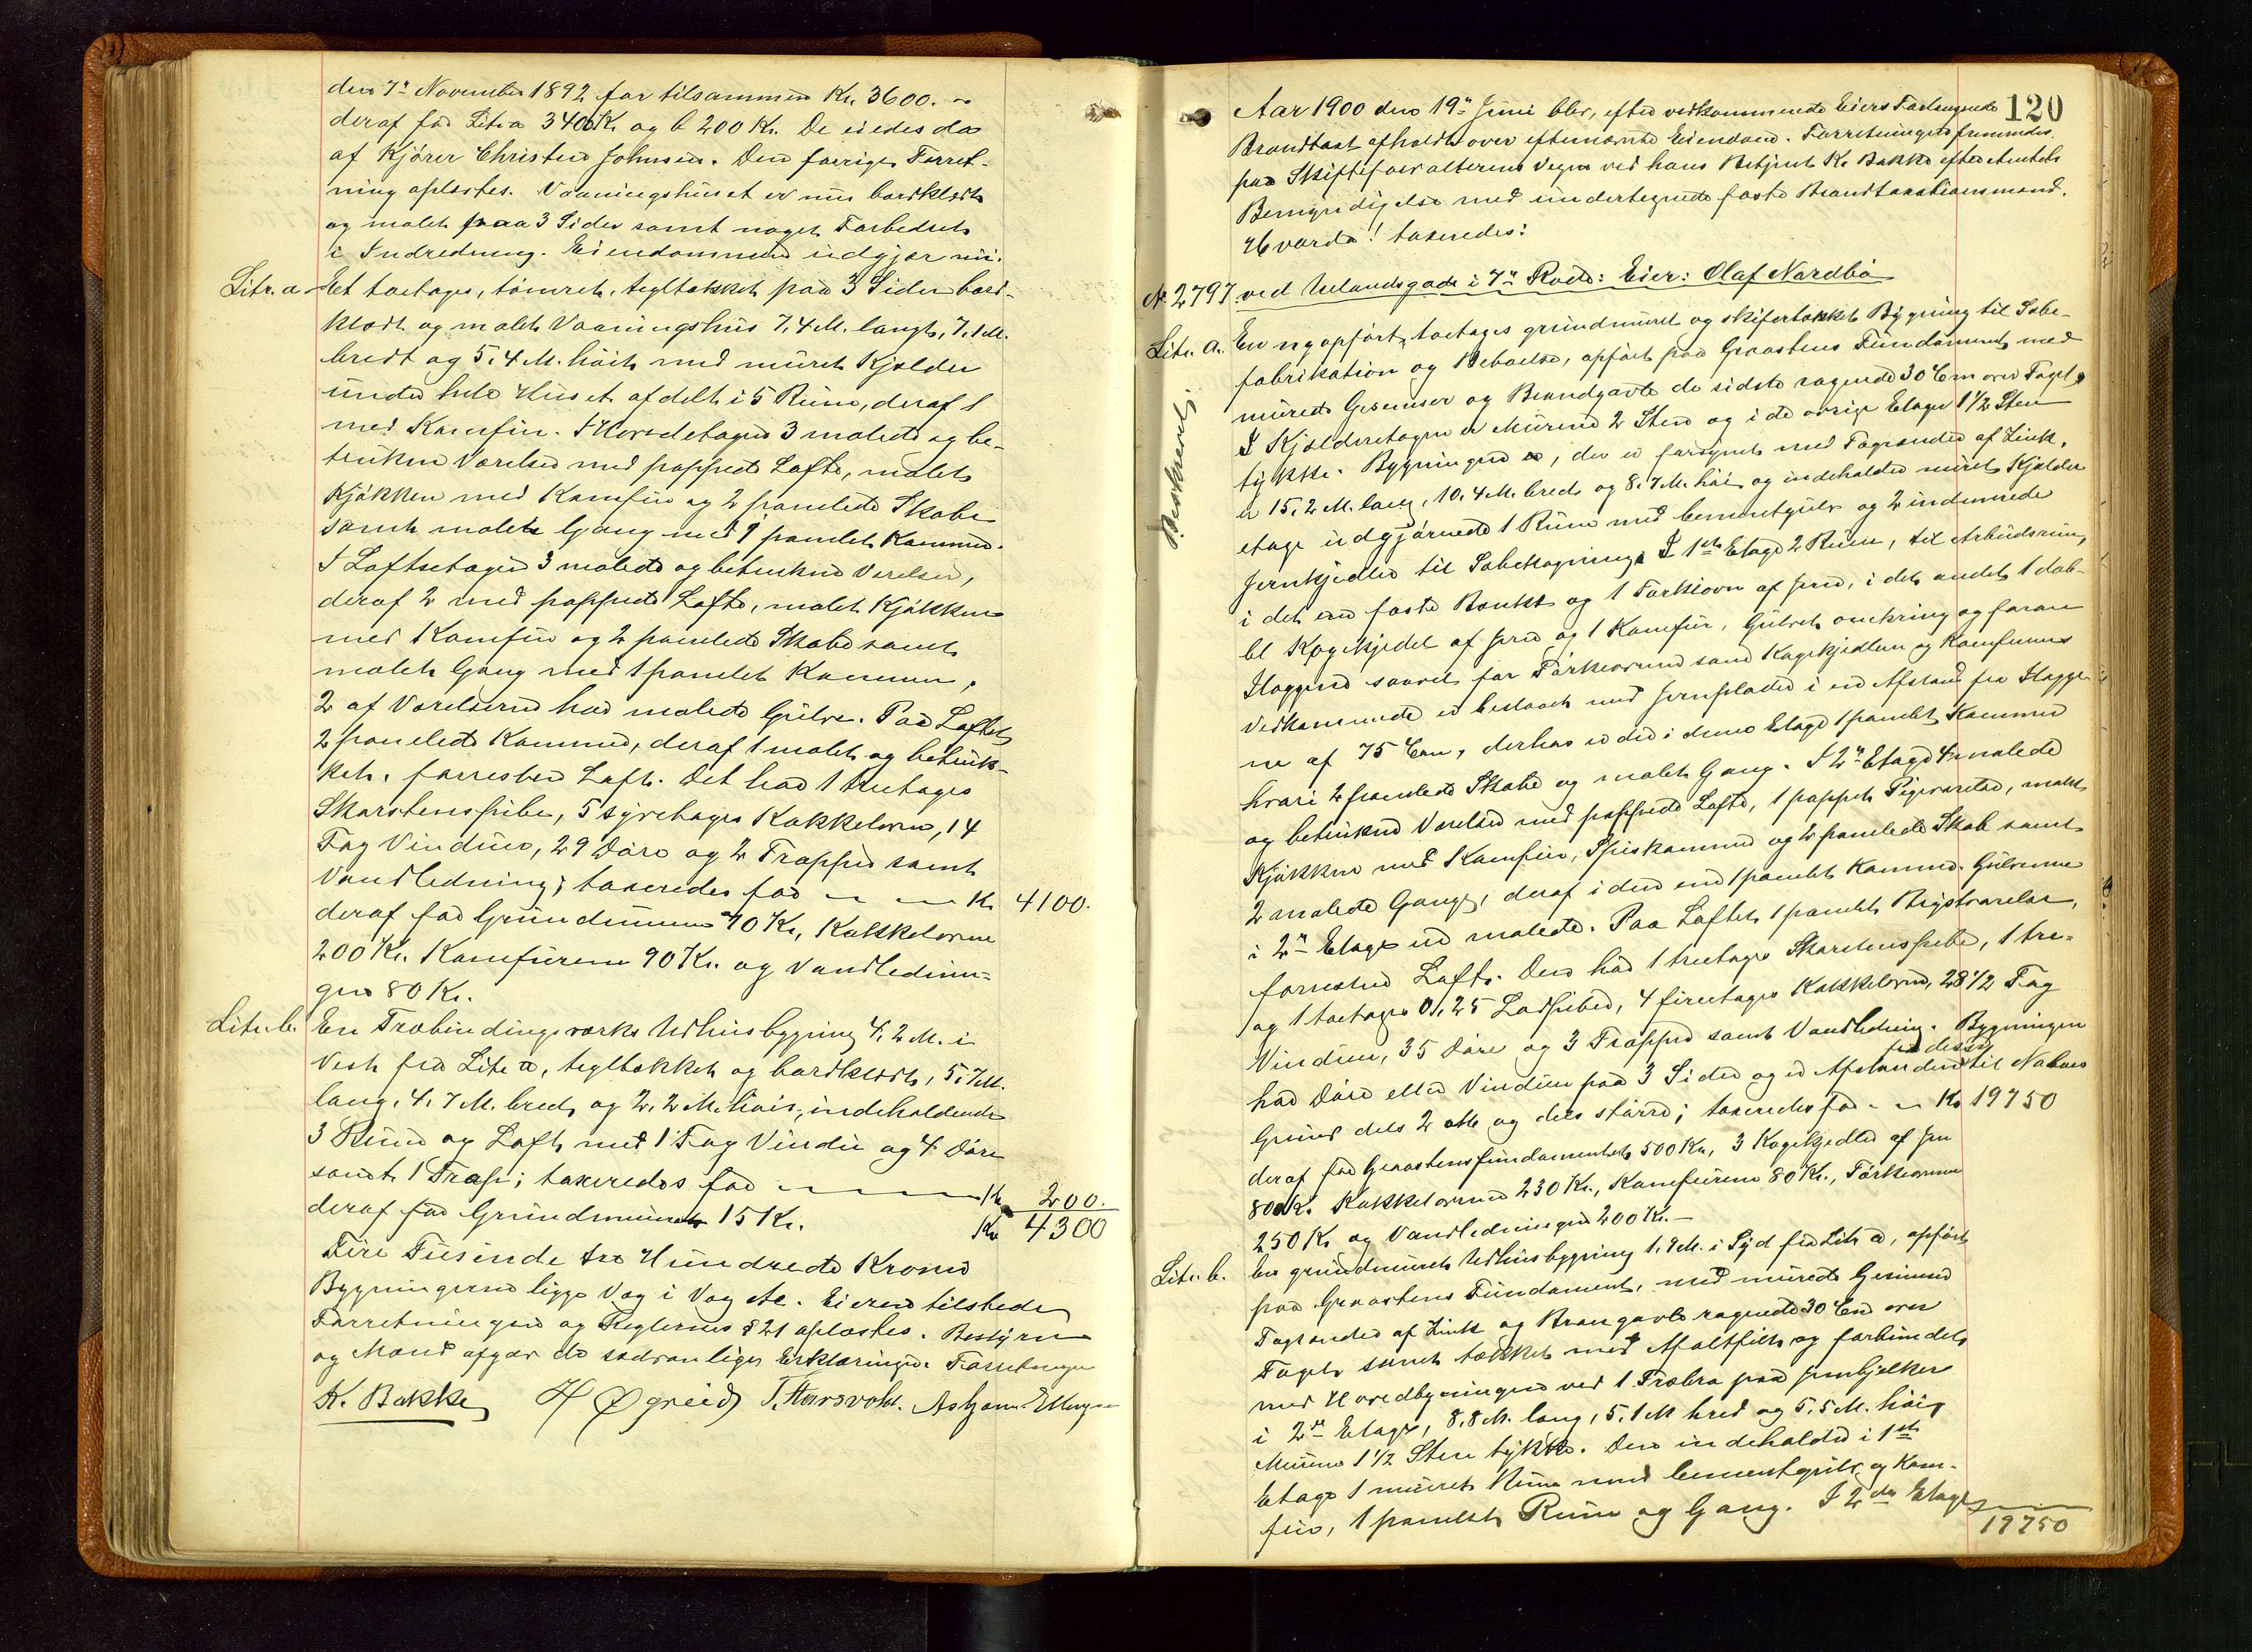 den 7de November 1892 for tilsammen Kr. 3600. ~
deraf for Litr a 3400 Kr. og b 200 Kr. De eiedes da
af Kjører Christen Johnsen. Den forrige Forret-
ning oplæstes. Vaaningshuset er nu bordklædt
og malet paa 3 Sider samt noget Forbedret
i Indredning. Eiendommen udgjør nu:
Litr. a Et toetages, tømret, tegltækket paa 3 Sider bord-
klædt og malet Vaaningshus 7,4 M. langt, 7,1 M.
bredt og 5,4 M. høit med muret Kjelder
under hele Huset afdelt i 5 Rum, deraf 1
med Komfur. I Hovedetagen 3 malede og be-
trukne Værelser med pappede Lofte, malet
Kjøkken med Komfur og 2 panelede Skabe
samt malet Gang med 1 panelet Kammer.
I Loftsetagen 3 malede og betrukne Værelser,
deraf 2 med pappede Lofte, malet Kjøkken
med Komfur og 2 panelede Skabe samt
malet Gang med 1 panelet Kammer,
2 af Værelserne har malede Gulve. Paa Loftet
2 panelede Kammer, deraf 1 malet og betruk-
ket, forresten Loft. Det har 1 treetages
Skorstenspibe, 5 syvetages Kakkelovne, 14
Fag Vinduer, 29 Døre og 2 Trapper samt
Vandledning; taxeredes for ~ ~ Kr. 4100.
deraf for Grundmuren 70 Kr., Kakkelovnene
200 Kr. Komfurene 90 Kr. og Vandlednin-
gen 80 Kr.
Litr. b. En Træbindingsværks Udhusbygning 4,2 M. i
Vest fra Litr a, tegltækket og bordklædt, 5,7 M.
lang, 4,7 M. bred og 2,2 M. høi, indeholdende
3 Rum og Loft med 1 Fag Vindu og 4 Døre
samt 1 Trap; taxeredes for ~ ~ Kr. 200.
deraf for Grundmuren 15 Kr. Kr. 4300
Fire Tusinde tre Hundrede Kroner
Bygningerne ligge Væg i Væg etc. Eieren tilstede
Forretningen og Reglernes § 21 oplæstes. Bestyren
og Mænd afgav de sædvanlige Erklæringer. Forretningen
K. Bakke H Øgreid T. Harsvold. Asbjørn Ellingsen
120
Aar 1900 den 19de Juni blev, efter vedkommende Eiers Forlangende
Brandtaxt afholdt over efternævnte Eiendom. Forretningen fremmedes
paa Skifteforvalterens Vegne ved hans Betjent K. Bakke efter Amtets
Bemyndigelse med undertegnede faste Brandtaxationsmænd.
Hvorda! taxeredes:
No 2797 ved Uelandsgade i 7de Rode: Eier: Olaf Nordbø
Beskrevet
Litr. a. En nyopført, toetages grundmuret og skifertækket Bygning til Sæbe-
fabrikation og Beboelse, opført paa Graastens Fundament med
murede Gesimser og Brandgavle de sidste ragende 30 Cm over Taget.
I Kjelderetagen er Murene 2 Sten og i de øvrige Etager 1 1/2 Sten
tykke. Bygningen, der er forsynet med Tagrender af Zink,
er 15,2 M. lang, 10,4 M. bred og 8,7 M. høi og indeholder muret Kjelder
etage udgjørende 1 Rum med Cementgulv og 2 indmurede
Jernkjedler til Sæbekogning. I 1ste Etage 2 Rum, til Arbeidsrum,
i det ene faste Bænke og 1 Tørkeovn af Jern, i det andet 1 dob-
bl Kogekjedel af Jern og 1 Komfur, Gulvet omkring og foran
Ilæggene saavel for Tørkeovnen som Kogekjedlen og Komfurens
Vedkommende er beslaaet med Jernplader i en Afstand fra Ilægge
ne af 75 Cm, derhos er der i denne Etage 1 panelet Kammer
hvori 2 panelede Skabe og malet Gang. I 2den Etage 4 malede
og betrukne Værelser med pappede Lofte, 1 pappet Pigeværelse, malet
Kjøkken med Komfur, Spiskammer og 2 panelede Skab samt
2 malede Gange, deraf i den ene 1 panelet Kammer. Gulvene
i 2den Etage er malede. Paa Loftet 1 panelet Rigtværelse,
forresten Loft. Den har 1 treetages Skorstenspibe, 1 tre-
og 1 toetages 0,25 Lødpiber, 4 fireetages Kakkelovne, 28 1/2 Fag
Vinduer, 35 Døre og 3 Trapper samt Vandledning. Bygningen
har Døre eller Vinduer paa 3 Sider og er Afstanden fra disse til Naboens
Grund dels 2 M. og dels større; taxeredes for ~ ~ Kr. 19750
deraf for Graastensfundamentet 500 Kr., 3 Kogekjedler af Jern
800 Kr. Kakkelovnene 230 Kr., Komfurene 80 Kr., Tørkeovnen
250 Kr. og Vandledningen 200 Kr. —
Litr. b. En grundmuret Udhusbygning 1,9 M. i Syd fra Litr a, opført
paa Graastens Fundament, med murede Gesimser
Tagrender af Zink og Brangavle ragende 30 Cm over
Taget samt tækket med Asfaltfilt og forbundet
med Hovedbygningen ved 1 Træbro paa Jernbjelker
i 2den Etage, 8,8 M. lang, 5,1 M bred og 5,5 M. høi,
Murene 1 1/2 Sten tykke. Den indeholder i 1ste
Etage 1 muret Rum med Cementgulv og Kom-
fur, 1 panelet Rum og Gang. I 2den Etage
19750